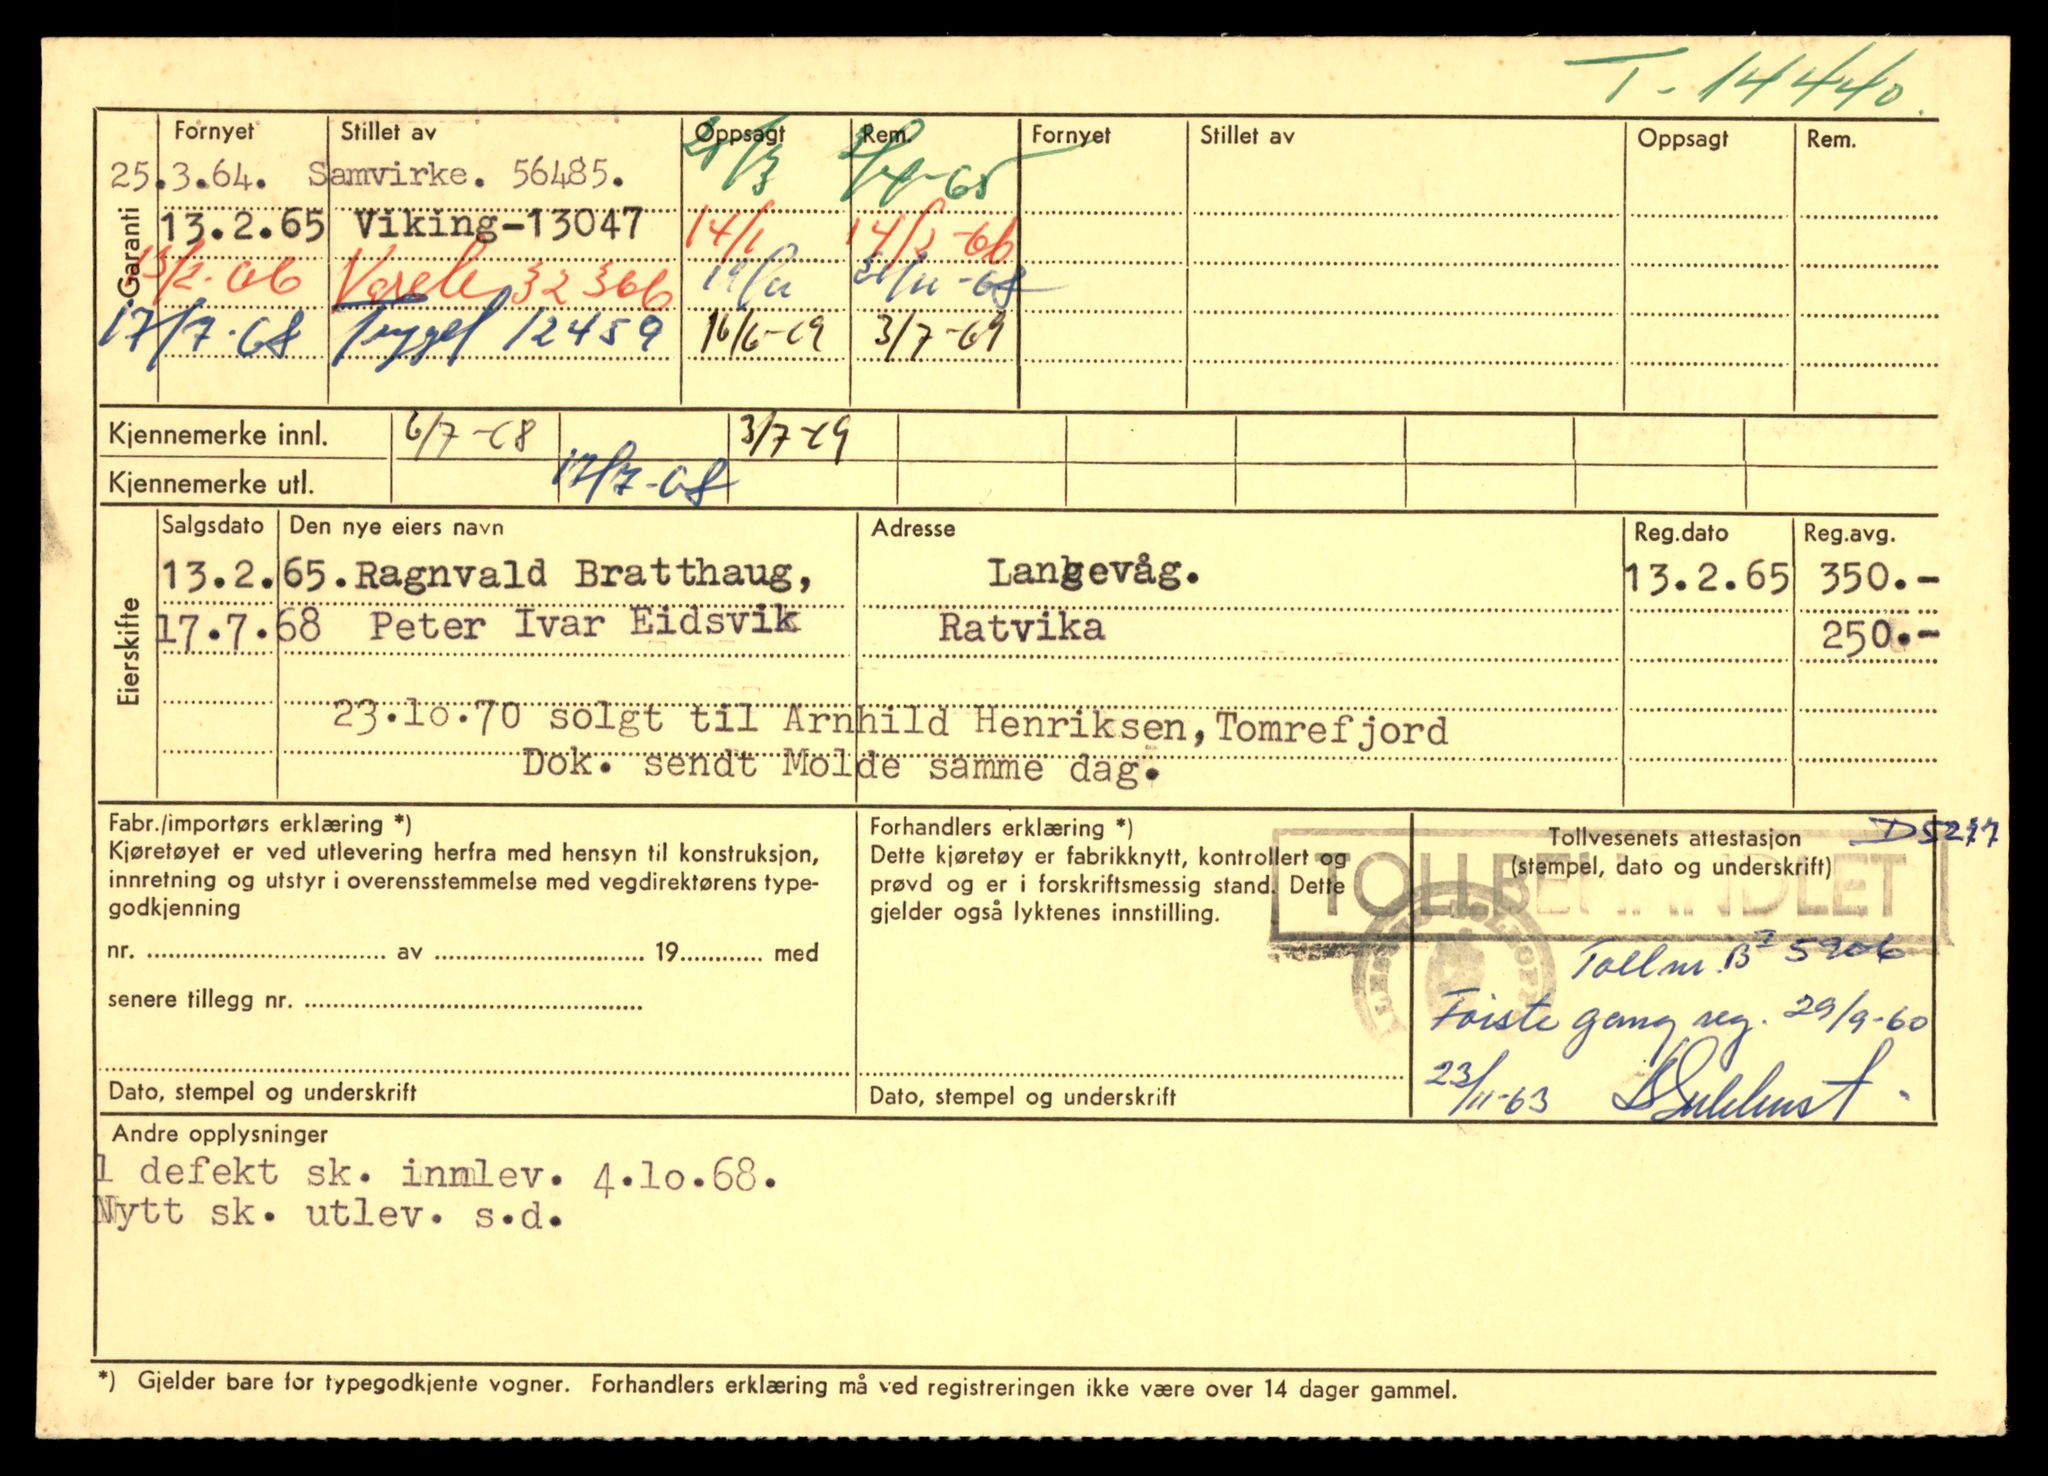 T-14440.
Garanti
Fornyet Stillet av Oppsagt Rem. Fornyet Stillet av Oppsagt Rem.
25.3.64. Samvirke. 56485.
13.2.65 Viking-13047 14/1 14/2-66
32366
17/7-68 12459 16/6-69 3/7-69
Kjennemerke innl. 6/7-68 3/7-69
Kjennemerke utl. 17/7-68
Eierskifte
Salgsdato Den nye eiers navn Adresse Reg.dato Reg.avg.
13.2.65. Ragnvald Bratthaug, Langevåg. 13.2.65 350.-
17.7.68 Peter Ivar Eidsvik Ratvika 250.-
23.lo.70 solgt til Arnhild Henriksen, Tomrefjord
Dok. sendt Molde samme dag.
Fabr./importørs erklæring *)
Kjøretøyet er ved utlevering herfra med hensyn til konstruksjon,
innretning og utstyr i overensstemmelse med vegdirektørens type-
godkjenning
nr. .......... av .......... 19.......... med
senere tillegg nr. ..........
Dato, stempel og underskrift
Forhandlers erklæring *)
Dette kjøretøy er fabrikknytt, kontrollert og
prøvd og er i forskriftsmessig stand. Dette
gjelder også lyktenes innstilling.
Dato, stempel og underskrift
Tollvesenets attestasjon
(stempel, dato og underskrift)
TOLLBEHANDLET
Tollnr. 5906
Første gang reg. 29/9-60
23/11-63
Andre opplysninger
1 defekt sk. innlev. 4.lo.68.
Nytt sk. utlev. s.d.
*) Gjelder bare for typegodkjente vogner. Forhandlers erklæring må ved registreringen ikke være over 14 dager gammel.